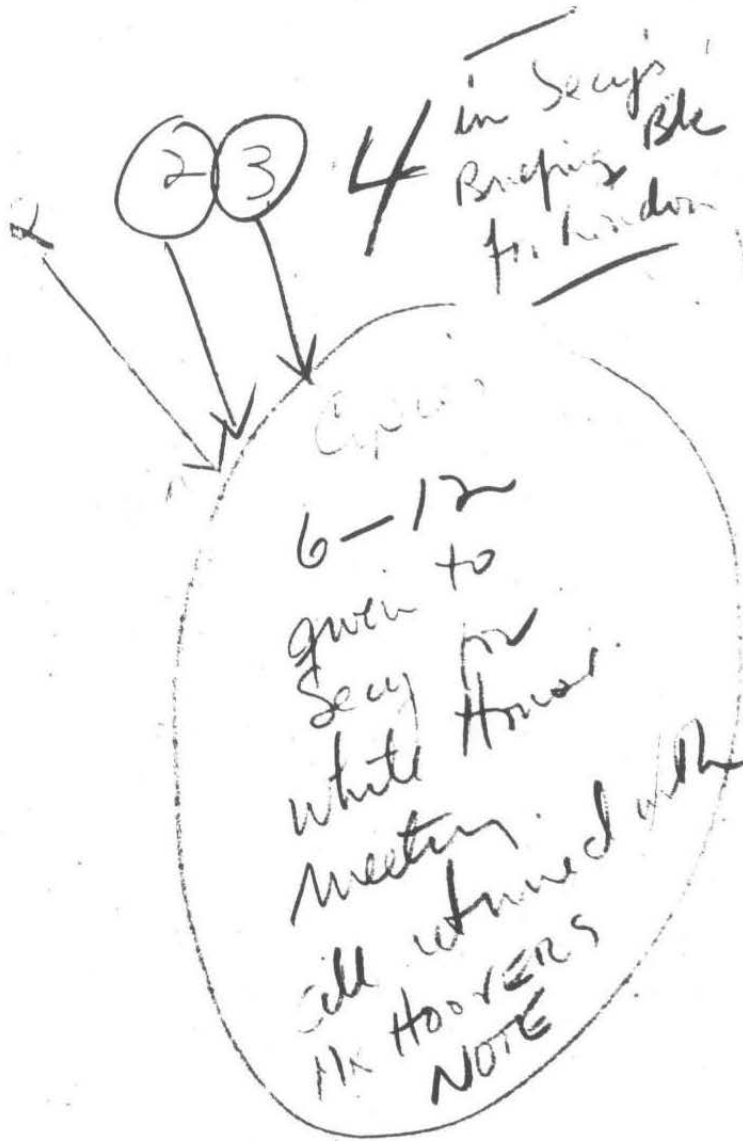 2 2 3 4 in Secy's
Briefing Bk
for London
Copies
6-12
given to
Secy for
White House
meeting.
all returned with
Mr HOOVERS
NOTE